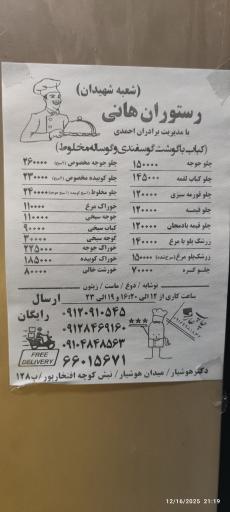 (شعبه شهیدان)
رستوران هانی
با مدیریت برادران احمدی
(کباب با گوشت گوسفندی و گوساله مخلوط)
چلو جوجه ۱۵۰۰۰۰
چلو کباب لقمه ۱۴۵۰۰۰
چلو قورمه سبزی ۱۲۰۰۰۰
چلو قیمه ۱۲۰۰۰۰
چلو قیمه بادمجان ۱۲۰۰۰۰
زرشک پلو با مرغ ۱۴۰۰۰۰
زرشک پلو مرغ ۱۵۰۰۰۰
چلو کره ۷۰۰۰۰
چلو جوجه مخصوص ۲۶۰۰۰۰
چلو کوبیده مخصوص ۲۳۰۰۰۰
چلو مخلوط ۲۴۰۰۰۰
خوراک مرغ ۱۱۰۰۰۰
جوجه سیخی ۱۱۰۰۰۰
کباب سیخی ۹۰۰۰۰
گوجه سیخی ۳۰۰۰۰
خوراک جوجه ۲۲۵۰۰۰
خوراک کوبیده ۱۸۵۰۰۰
خورشت خالی ۸۰۰۰۰
نوشابه / دوغ / ماست / زیتون
ساعت کاری از ۱۲ الی ۱۶:۲۰ و ۱۹ الی ۲۳
ارسال
رایگان
FREE
DELIVERY
۰۹۱۲۰۹۱۰۵۴۵
۰۹۱۲۸۴۶۹۱۶۰
۰۹۱۰۴۸۴۸۵۶۳
۶۶۰۱۵۶۷۱
دکتر هوشیار / میدان هوشیار / نبش کوچه افتخارپور / پ ۱۲۸
12/16/2025 21:19